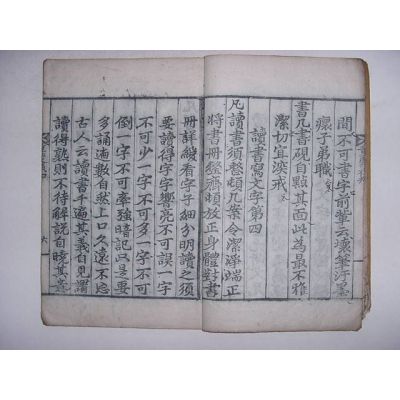 間不可書字前輩云壞筆汙墨
瘝子弟職
書几書硯自黥其面此為最不雅
潔切宜深戒
讀書寫文字第四
凡讀書須整頓几案令潔淨端正
將書冊整齊頓放正身體對書
冊詳緩看字子細分明讀之須
要讀得字字響亮不可誤一字
不可少一字不可多一字不可
倒一字不可牽強暗記只是要
多誦遍數自然上口久遠不忘
古人云讀書千遍其義自見謂
讀得熟則不待解說自曉其義
六